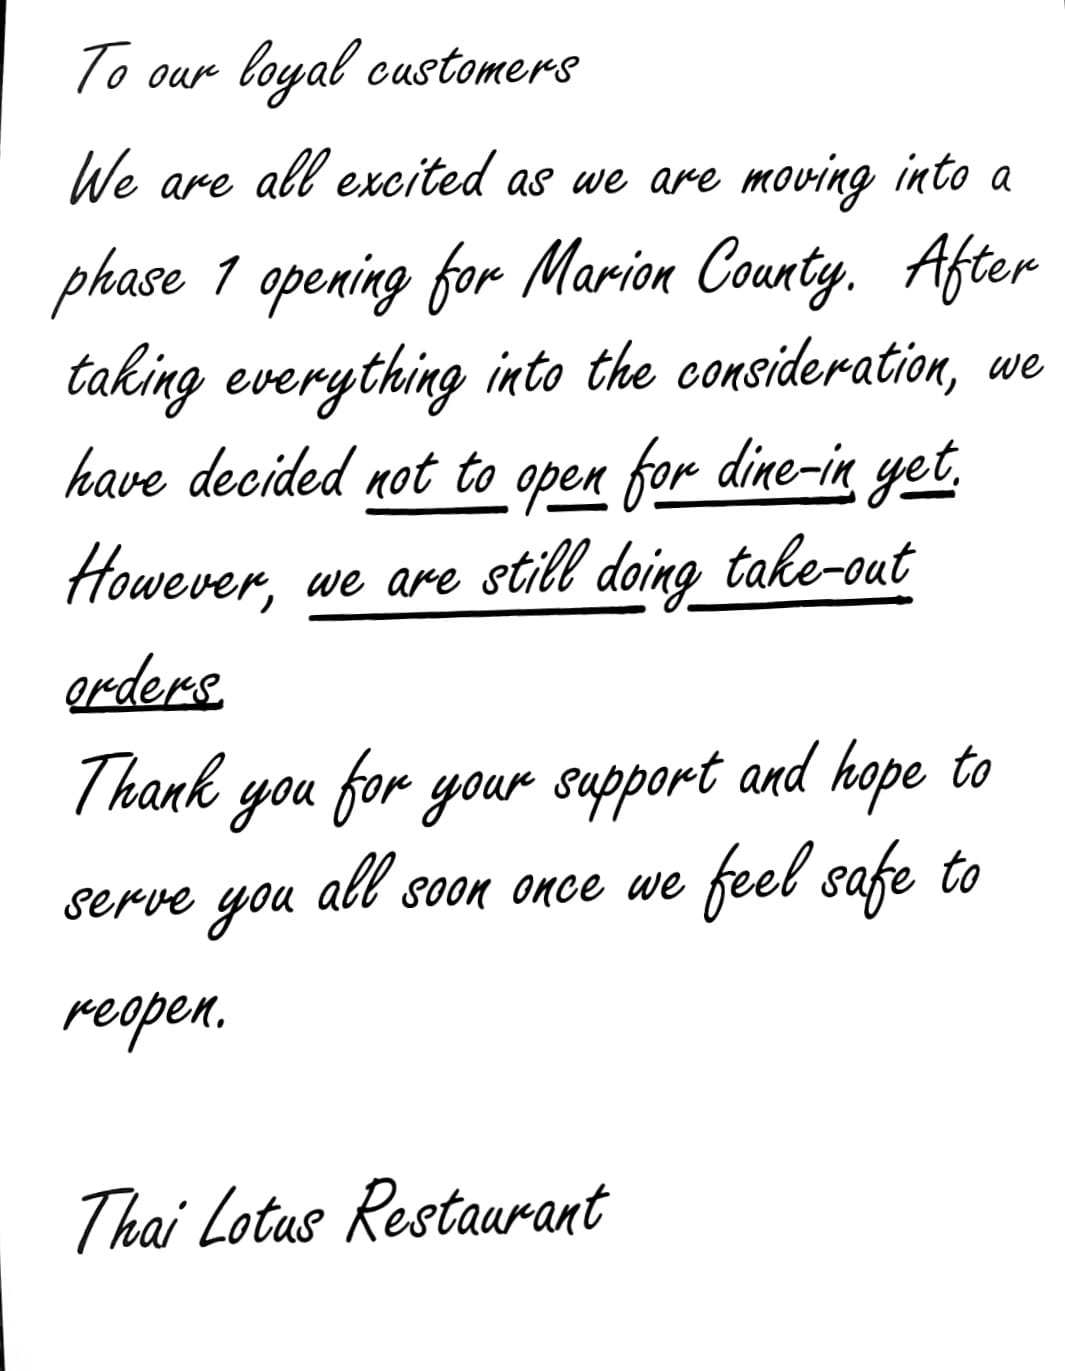 To our loyal customers
We are all excited as we are moving into a
phase 1 opening for Marion County. After
taking everything into the consideration, we
have decided not to open for dine-in yet.
However, we are still doing take-out
orders.
Thank you for your support and hope to
serve you all soon once we feel safe to
reopen.
Thai Lotus Restaurant